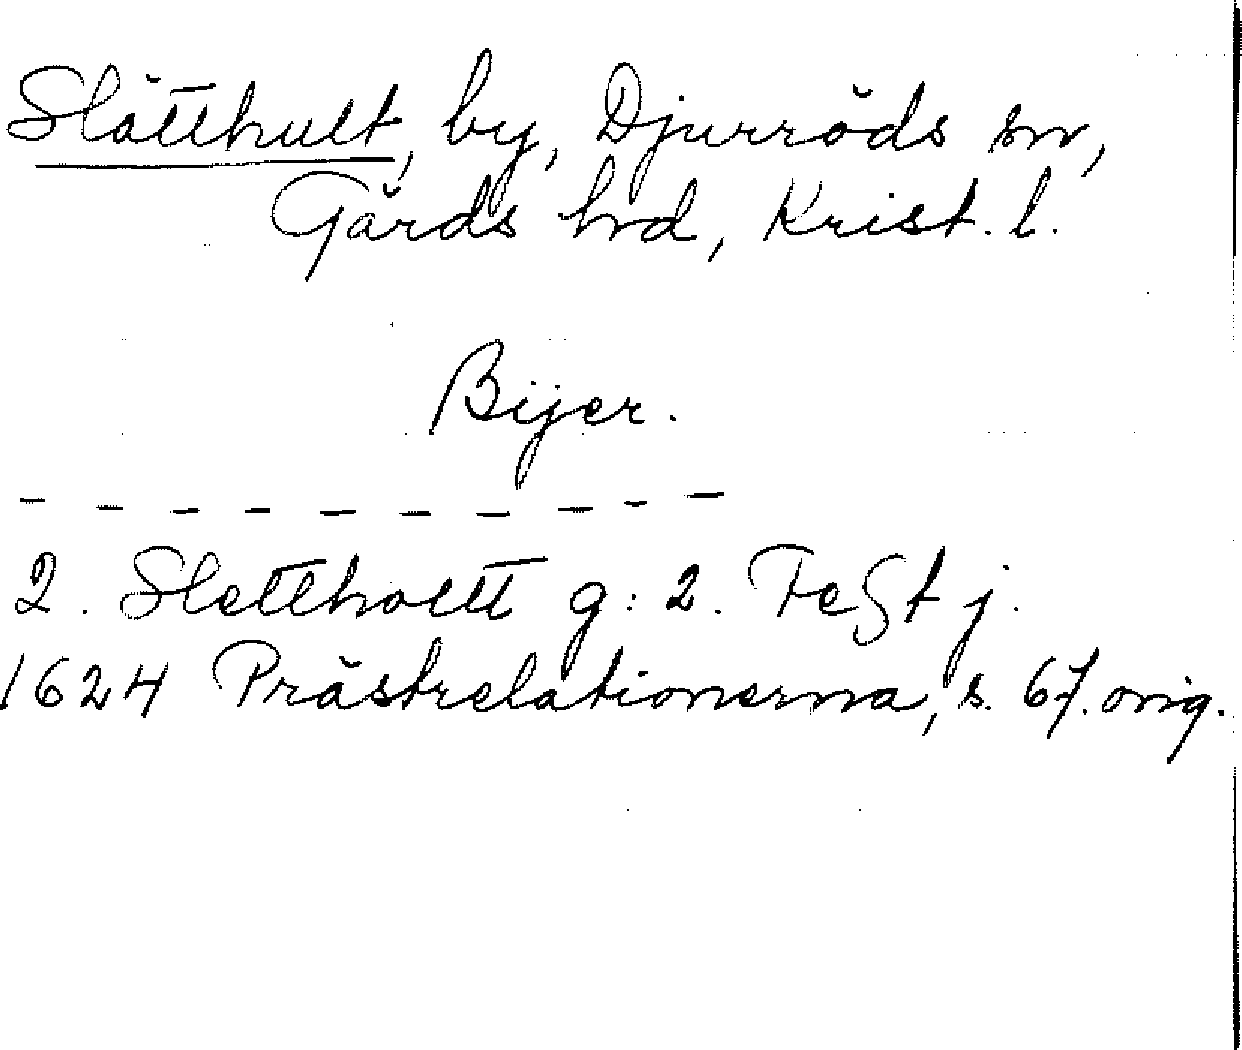 Slätthult, by, Djurröds sn,
Gärds hrd, Krist. l.
Bijer.
- - - - - - - - - -
2. Sletthottt g: 2. Fest j.
1624 Prästrelationerna, s. 67. orig.